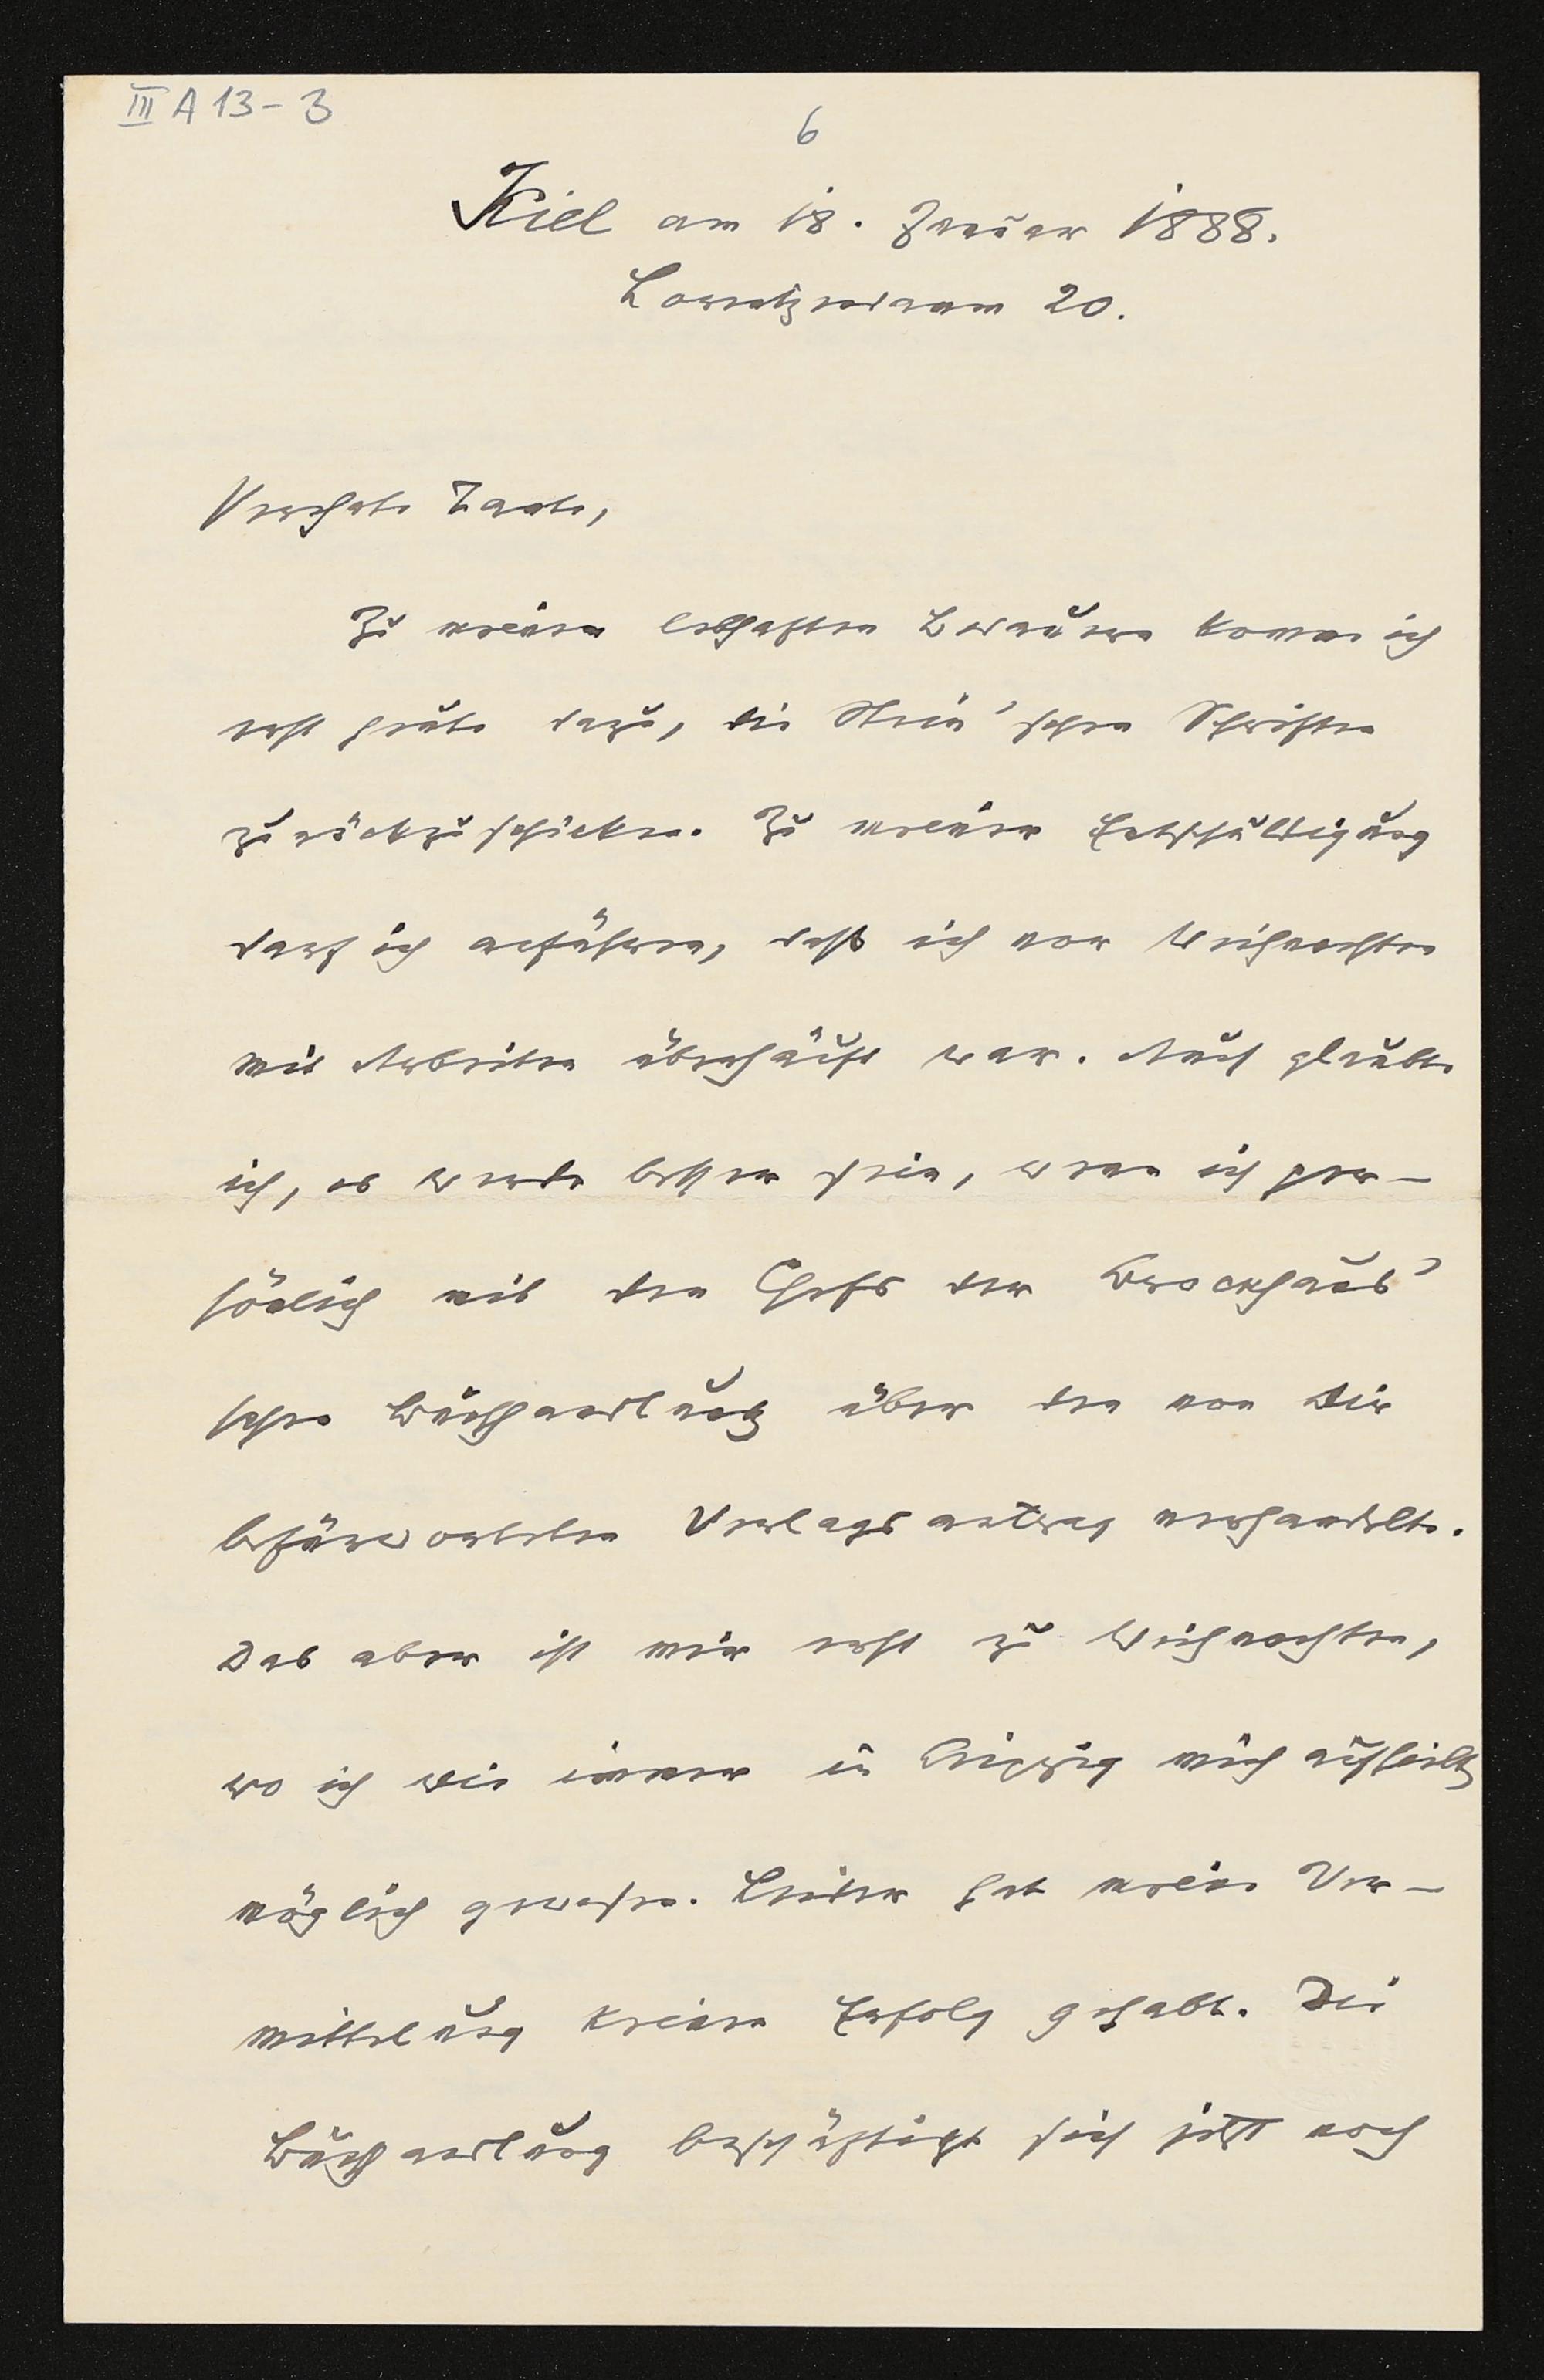 III A 13-3
6
Kiel am 18. Januar 1888.
Lorentzendamm 20.
Verehrte Tante,
Zu meinem lebhaften Bedauern komme ich
erst heute dazu, die Stein'schen Schriften
zurückzuschicken. Zu meiner Entschuldigung
darf ich anführen, daß ich vor Weihnachten
mit Arbeiten überhäuft war. Auch glaubte
ich, es werde besser sein, wenn ich per-
sönlich mit den Chefs der Brockhaus'
schen Buchhandlung über den von Dir
befürworteten Verlagsantrag verhandelte.
Das aber ist mir erst zu Weihnachten,
wo ich wie immer in Leipzig mich aufhielt,
möglich gewesen. Leider hat meine Ver-
mittelung keinen Erfolg gehabt. Die
Buchhandlung beschäftigt sich jetzt noch